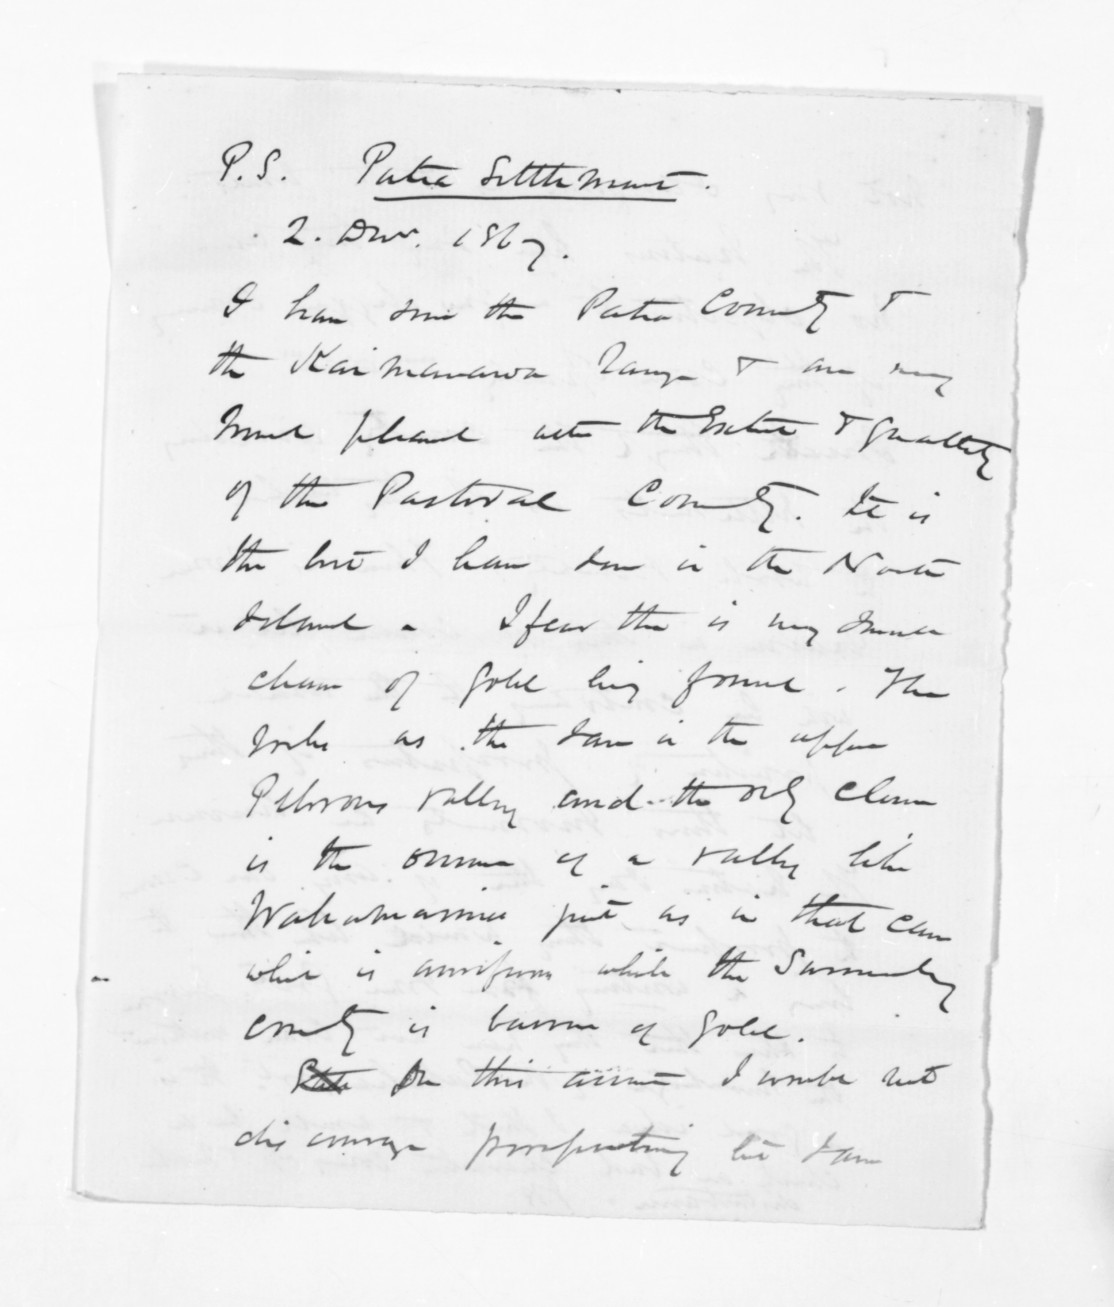 P.S. Patea Settlement.
2. Decr. 1867.
I have seen the Patea Country &
the Kaimanawa Range & am very
much pleased with the Extent & Quallity
of the Pastoral Country. It is
the best I have seen in the North
Island - I fear there is very small
chance of Gold being found. The
rocks as the same in the upper
Pelorous valley and the only chance
is the occurrence of a valley like
Wakamarina just as in that case
which is auriferous while the Surrounding
country is barren of Gold.
On this account I would not
discourage prospecting but I am